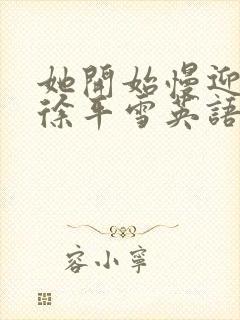 她開始慢迎
徐平雪英語
容小寧